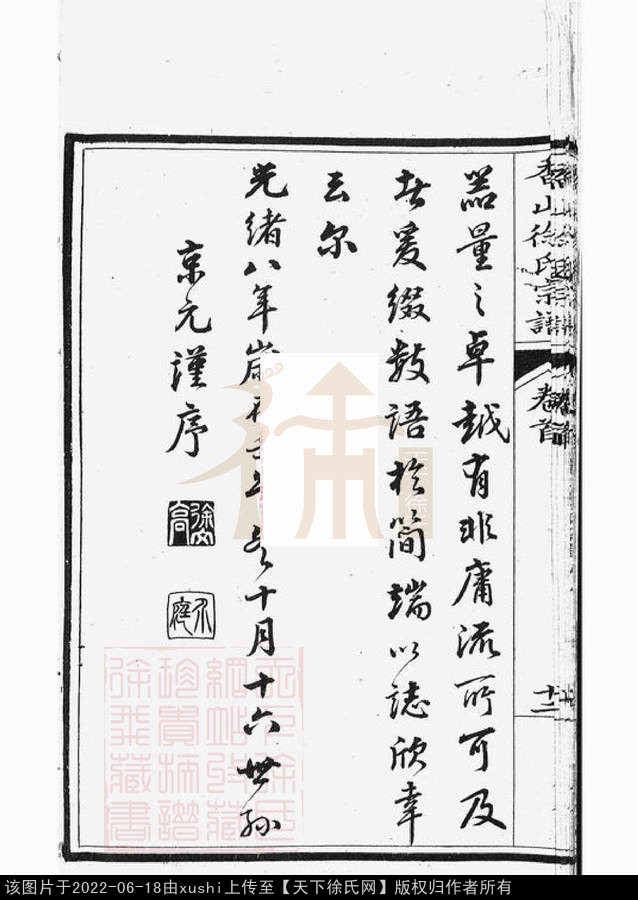 香山徐氏宗譜
卷首
十二
器量之卓越有非庸流所可及
者爰綴數語於簡端以誌欣幸
云尔
光緒八年歲壬午冬十月十六世孫
京元謹序
天下徐氏
網站珍藏
珍貴族譜
藏書
该图片于2022-06-18由xushi上传至【天下徐氏网】版权归作者所有